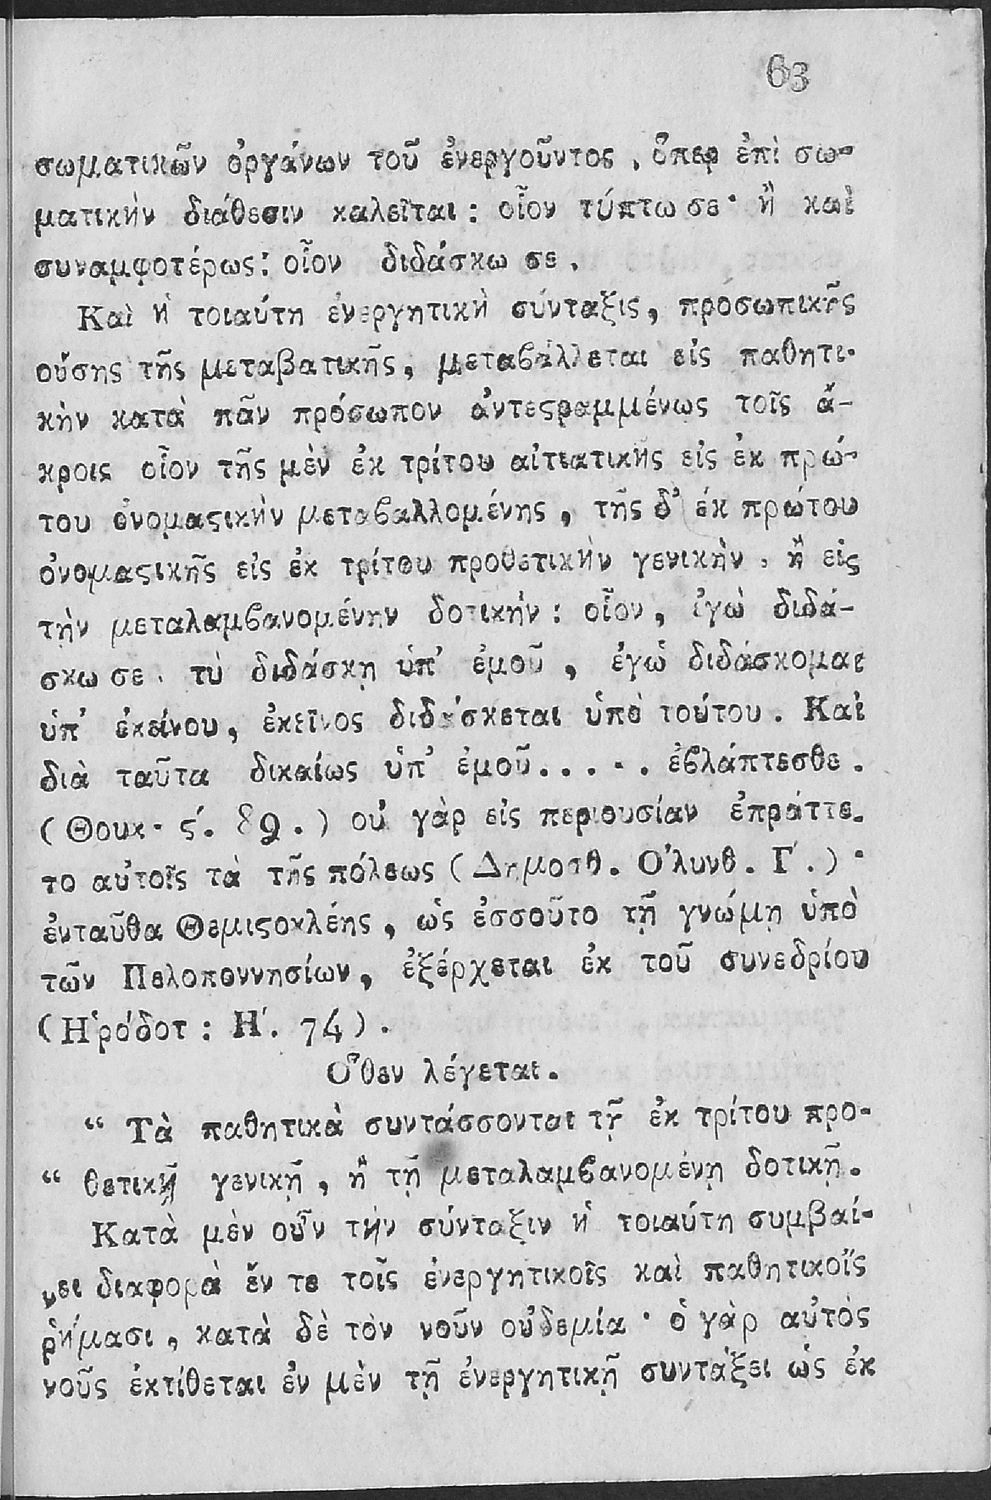 63
σωματικῶν ὀργάνων τοῦ ἐνεργοῦντος, ὅπερ ἐπὶ σω-
ματικὴν διάθεσιν καλεῖται: οἷον τύπτω σε· ἢ καὶ
συναμφοτέρως: οἷον διδάσκω σε.
Καὶ ἡ τοιαύτη ἐνεργητικὴ σύνταξις, προσωπικῆς
οὔσης τῆς μεταβατικῆς, μεταβάλλεται εἰς παθητι-
κὴν κατὰ πᾶν πρόσωπον ἀντεςραμμένως τοῖς ἄ-
κροις οἷον τῆς μὲν ἐκ τρίτου αἰτιατικῆς εἰς ἐκ πρώ-
του ὀνομαςικὴν μεταβαλλομένης, τῆς δ' ἐκ πρώτου
ὀνομαςικῆς εἰς ἐκ τρίτου προθετικὴν γενικὴν, ἢ εἰς
τὴν μεταλαμβανομένην δοτικήν: οἷον, ἐγὼ διδά-
σκω σε. τὺ διδάσκῃ ὑπ' ἐμοῦ, ἐγὼ διδάσκομαι
ὑπ' ἐκείνου, ἐκεῖνος διδάσκεται ὑπὸ τούτου. Καὶ
διὰ ταῦτα δικαίως ὑπ' ἐμοῦ..... ἐβλάπτεσθε.
(Θουκ. ς'. 89.) οὐ γὰρ εἰς περιουσίαν ἐπράττε-
το αὐτοῖς τὰ τῆς πόλεως (Δημοσθ. Ὀλυνθ. Γ'.)·
ἐνταῦθα Θεμιςοκλέης, ὡς ἐσσοῦτο τῇ γνώμῃ ὑπὸ
τῶν Πελοποννησίων, ἐξέρχεται ἐκ τοῦ συνεδρίου
(Ἡρόδοτ: Η'. 74).
Ὅθεν λέγεται.
“ Τὰ παθητικὰ συντάσσονται τῇ ἐκ τρίτου προ-
“ θετικῇ γενικῇ, ἢ τῇ μεταλαμβανομένῃ δοτικῇ.
Κατὰ μὲν οὖν τὴν σύνταξιν ἡ τοιαύτη συμβαί-
νει διαφορὰ ἔν τε τοῖς ἐνεργητικοῖς καὶ παθητικοῖς
ῥήμασι, κατὰ δὲ τὸν νοῦν οὐδεμία· ὁ γὰρ αὐτὸς
νοῦς ἐκτίθεται ἐν μὲν τῇ ἐνεργητικῇ συντάξει ὡς ἐκ